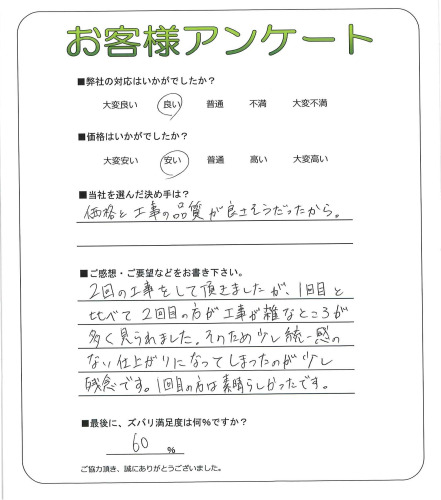 お客様アンケート
■弊社の対応はいかがでしたか?
大変良い 良い 普通 不満 大変不満
■価格はいかがでしたか?
大変安い 安い 普通 高い 大変高い
■当社を選んだ決め手は?
価格と工事の品質が良さそうだったから。
■ご感想・ご要望などをお書き下さい。
2回の工事をして頂きましたが、1回目と
比べて2回目の方が工事が雑なところが
多く見られました。そのため少し統一感の
ない仕上がりになってしまったのが少し
残念です。1回目の方は素晴らしかったです。
■最後に、ズバリ満足度は何%ですか?
60 %
ご協力頂き、誠にありがとうございました。